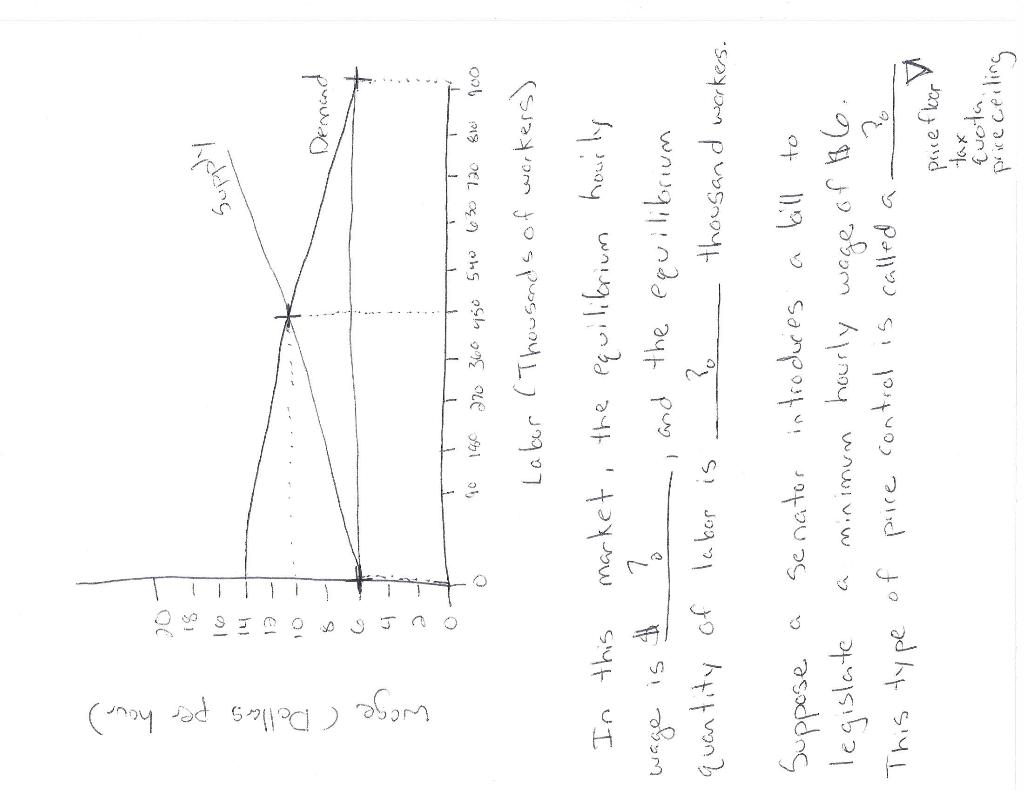 Wage (Dollars per hour)
20
18
16
14
12
10
8
6
4
2
0
Supply
Demand
0 90 180 270 360 450 540 630 720 810 900
Labor (Thousands of workers)
In this market, the equilibrium hourly
wage is $ ? , and the equilibrium
quantity of labor is ? thousand workers.
Suppose a senator introduces a bill to
legislate a minimum hourly wage of $6.
This type of price control is called a ?
price floor
tax
quota
price ceiling